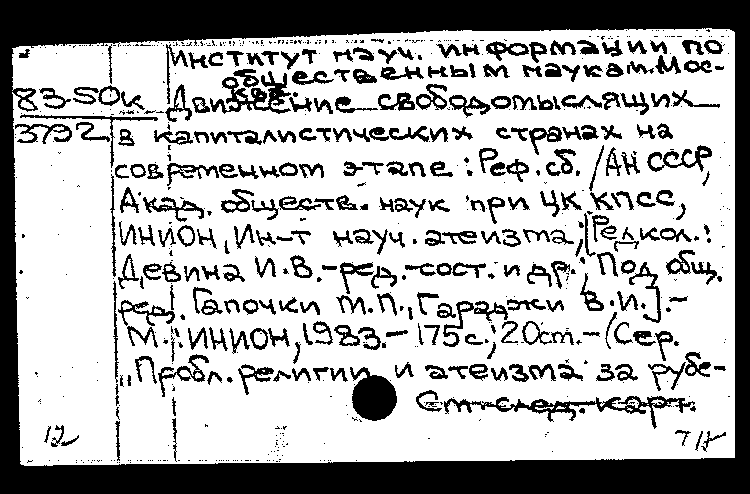 Институт науч. информации по
общественным наукам. Мос-
ква.
83-50к Движение свободомыслящих
3792 в капиталистических странах на
современном этапе : Реф. сб. / АН СССР,
Акад. обществ. наук при ЦК КПСС,
ИНИОН, Ин-т науч. атеизма; [Редкол.:
Девина И.В. - ред.-сост. и др.; Под общ.
ред. Гапочки М.П., Гараджи В.И.]. -
М.: ИНИОН, 1983. - 175 с.; 20 см. - (Сер.
"Пробл. религии и атеизма за рубе-
См. след. карт.
12